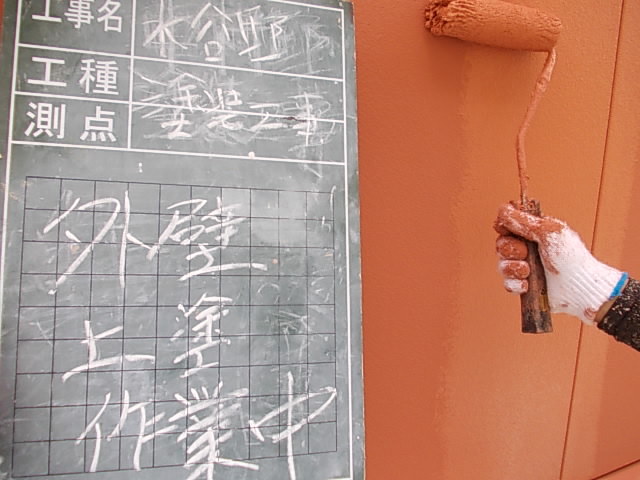 工事名 水谷邸
工種 塗装工事
測点
外壁
上塗
作業中